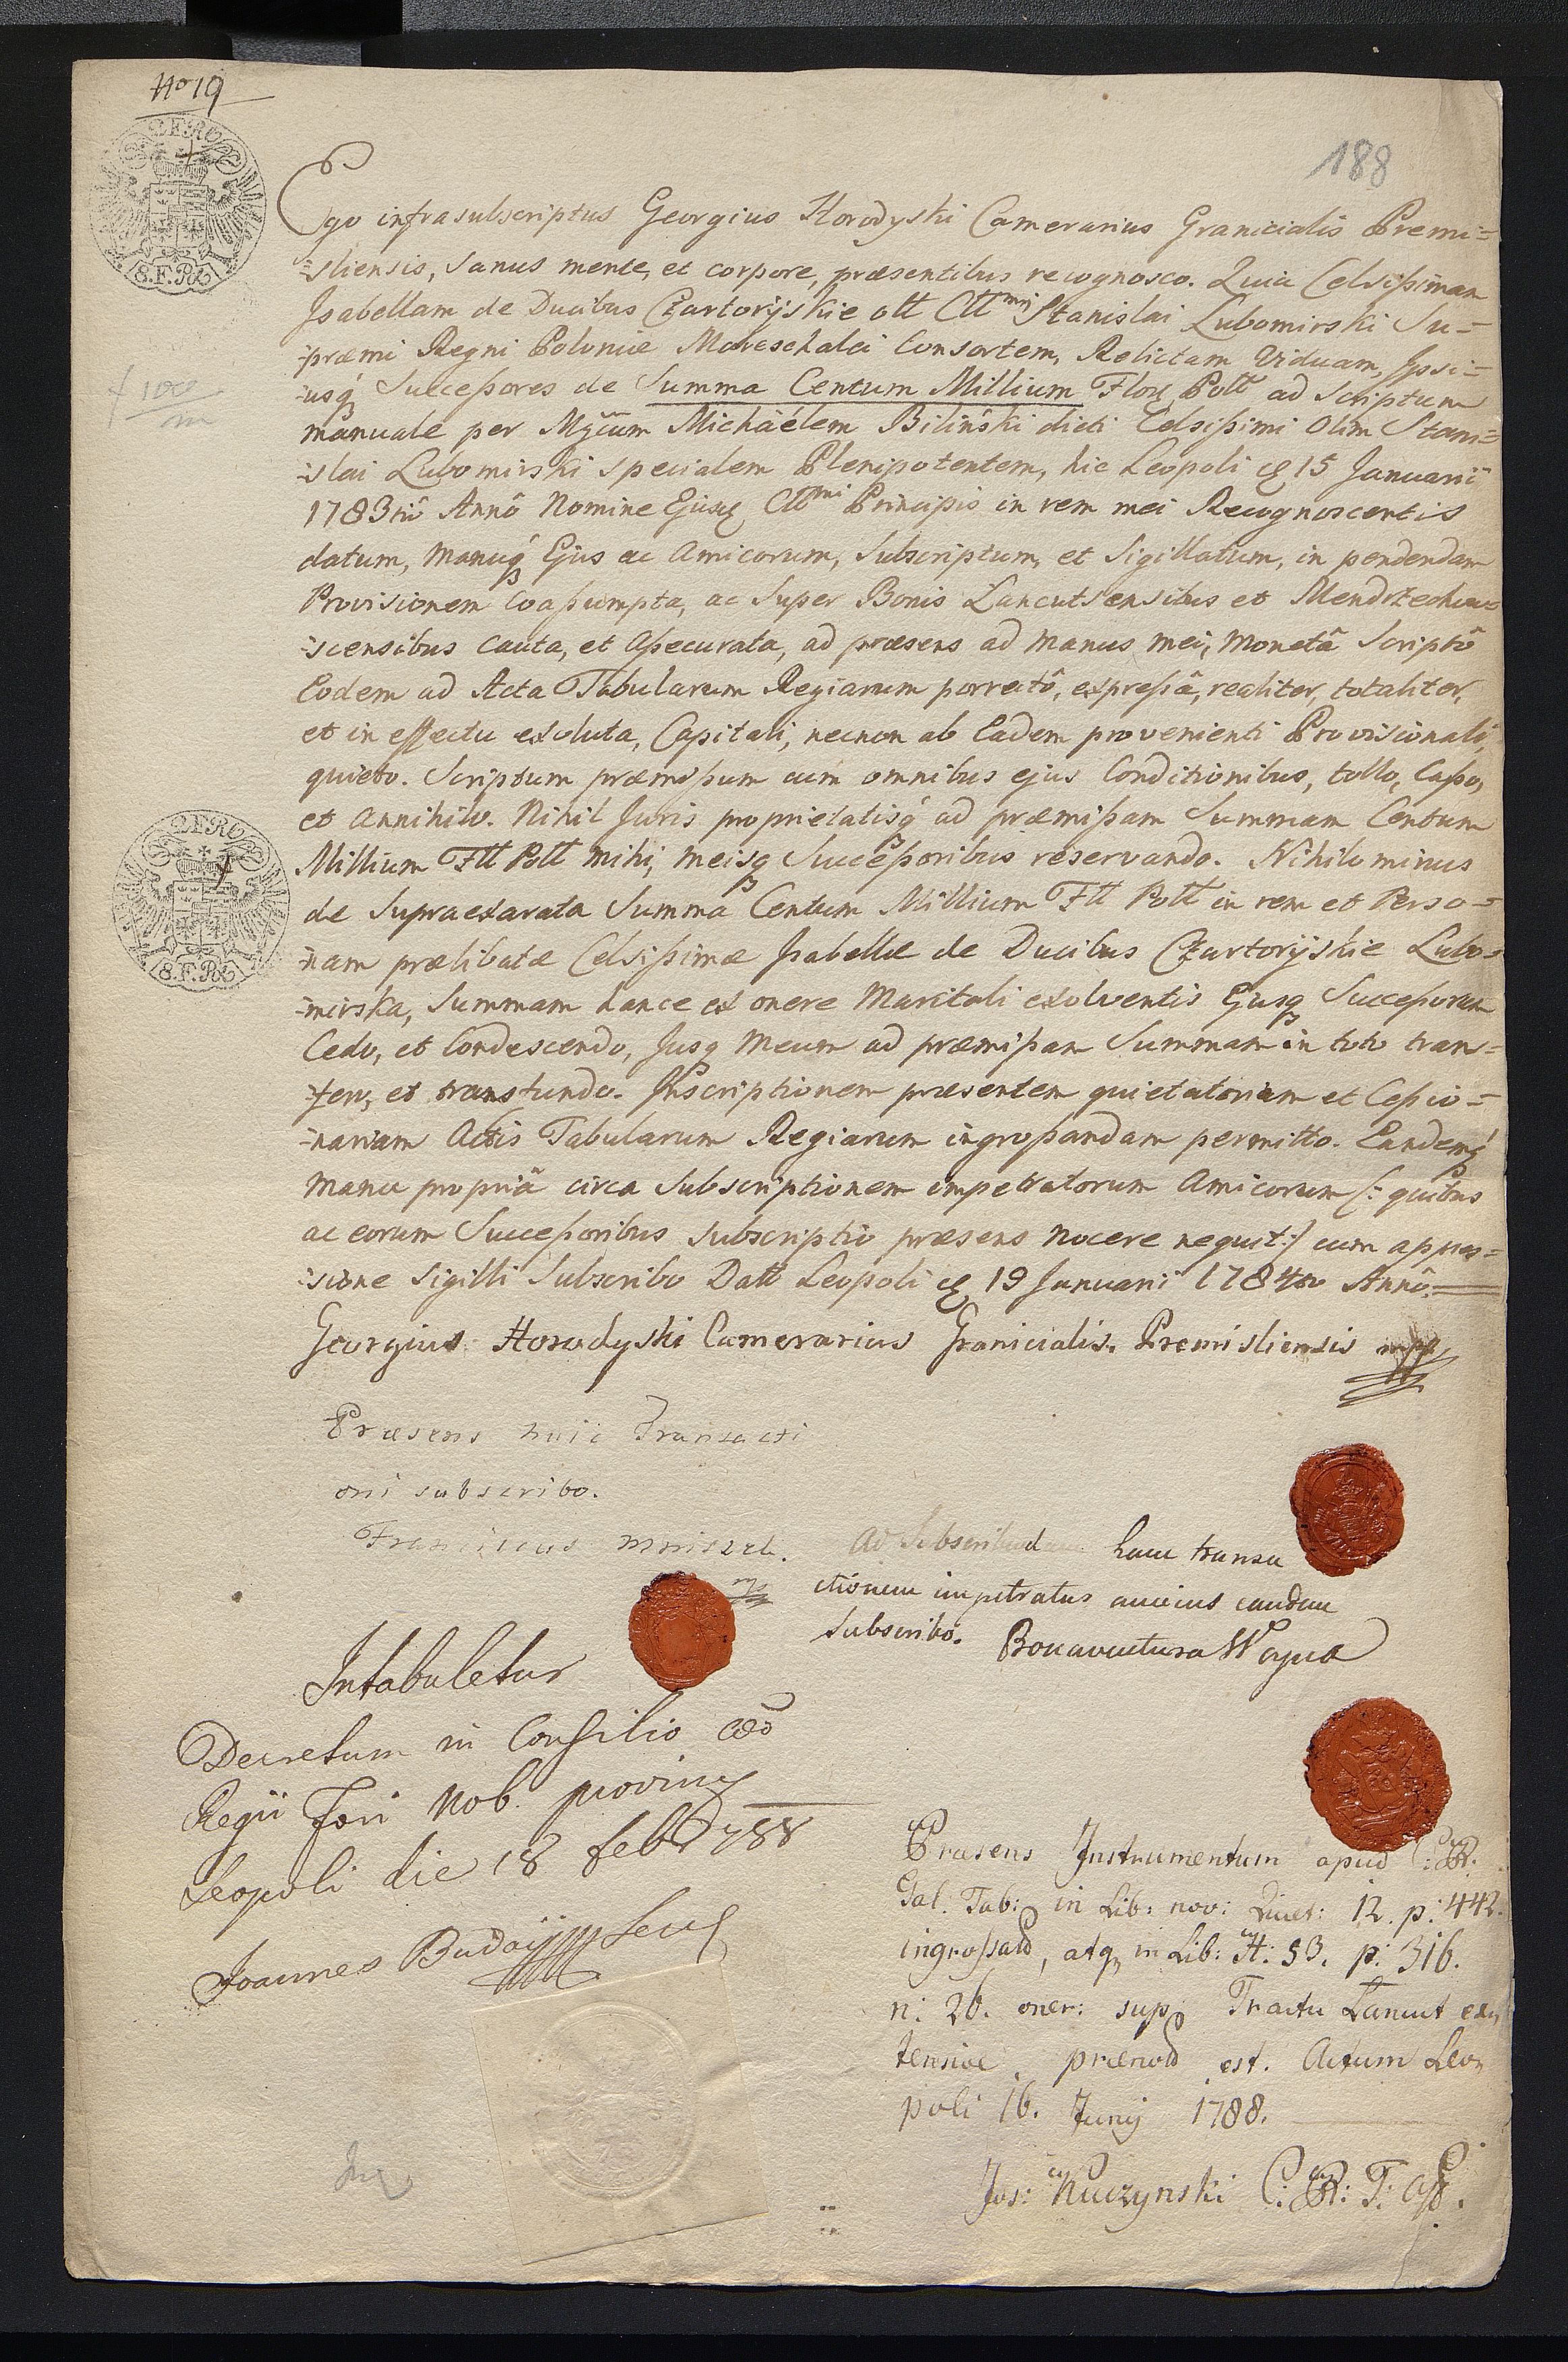 No 19
188
Ego infrasubscriptus Georgius Horodyski Camerarius Granicialis Premi=
=sliensis, sanus mente, et corpore, præsentibus recognosco. Quia Celsißimam
Isabellam de Ducibus Czartoryskie olt Cltmi Stanislai Lubomirski Su=
=præmi Regni Poloniæ Mareschalci Consortem, Relictam Viduam, Ipsi=
=usq Succeßores de Summa Centum Millium Flor Poll ad Scriptum
manuale per Mgcum Michaélem Bilinski dicti Celsißimi Olim Stani=
=slai Lubomirski specialem Plenipotentem, hic Leopoli 15 Januarii
1783tii Annô Nomine Ejusq Principis in rem mei Recognoscentis
datum, Manuq Ejus ac Amicorum, Subscriptum, et Sigillatum, in pendendam
Provisionem Coaßumpta, ac Super Bonis Lancutsensibus et Mendrzechow=
=scensibus cauta, et aßecurata, ad præsens ad Manus mei, Monetâ Scriptô
Eodem ad Acta Tabularum Regiarum porrectô, expreßâ, realiter, totaliter,
et in effectu exoluta, Capitali, necnon ab Eadem provenienti Provisionali,
quieto. Scriptum præmißum cum omnibus ejus Conditionibus, tollo, Caßo,
et Annihilo. Nihil Juris proprietatisq ad præmißam Summam Centum
Millium Fll Poll mihi, meisq Succeßoribus reservando. Nihilominus
de Supraexarata Summa Centum Millium Fll Poll in rem et Perso=
=nam prælibatæ Celsißimæ Isabellæ de Ducibus Czartoryskie Lubo=
=mirska, Summam hance ex onere Maritali exolventis Ejusq Succeßorum
Cedo, et Condescendo, Jusq Meum ad præmißam Summam in toto trans=
=fero, et transfundo. Inscriptionem præsentem quietatoriam et Ceßio=
=nariam Actis Tabularum Regiarum ingroßandam permitto. Eandemq
Manu propriâ circa Subscriptionem impetratorum Amicorum (: quibus
ac eorum Succeßoribus subscriptio præsens nocere nequit :) cum appres=
=sione Sigilli Subscribo Datt Leopoli 19 Januarii 1784to Annô
Georgius Horodyski Camerarius Granicialis Premisliensis mpp
Præsens huic Transacti
oni subscribo.
Franciscus Mniszek.
mp
Ad Subscribendam hanc transa
ctionem impetratus amicus eandem
Subscribo. Bonaventura
Intabuletur
Decretum in Consilio Cæo
Regii Fori Nob. provinc
Leopoli die 18 feb 788
Joannes Saec
Præsens Instrumentum apud C: R:
Gal: Tab: in Lib: nov: Quiet: 12. p: 442.
ingrossatd, atq in Lib: H: 53. p: 316.
n: 26. oner: sup: Tractu Lancut ex
tensive prænotd est. Actum Leo
poli 16. Junij 1788.
Jos: Kuczynski C: R: T: Aß.